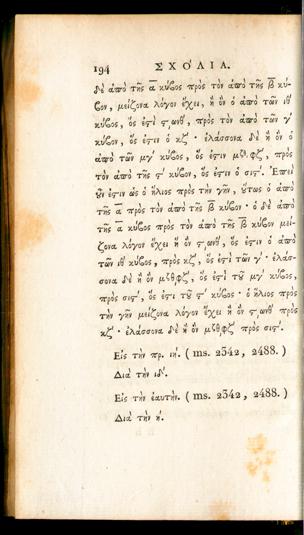 194 ΣΧΟΛΙΑ.
δὲ ἀπὸ τῆς α̅ κύβος πρὸς τὸν ἀπὸ τῆς β̅ κύ-
βον, μείζονα λόγον ἔχει, ἢ ὃν ὁ ἀπὸ τῶν ιθ
κύβος, ὅς ἐστι ͵ϛωνθ, πρὸς τὸν ἀπὸ τῶν γ
κύβον, ὅς ἐστιν ὁ κζ · ἐλάσσονα δὲ ἢ ὃν ὁ
ἀπὸ τῶν μγ κύβος, ὅς ἐστιν μ͵θφζ, πρὸς
τὸν ἀπὸ τῆς ϛ κύβον, ὅς ἐστιν ὁ σιϛ. Ἐπεὶ
οὖν ἐστιν ὡς ὁ ἥλιος πρὸς τὴν γῆν, οὕτως ὁ ἀπὸ
τῆς α̅ πρὸς τὸν ἀπὸ τῆς β̅ κύβον · ὁ δὲ ἀπὸ
τῆς α̅ κύβος πρὸς τὸν ἀπὸ τῆς β̅ κύβον μεί-
ζονα λόγον ἔχει ἢ ὃν ͵ϛωνθ, ὅς ἐστιν ὁ ἀπὸ
τῶν ιθ κύβος, πρὸς κζ, ὅς ἐστὶ τῶν γ · ἐλάσ-
σονα δὲ ἢ ὃν μ͵θφζ, ὅς ἐστὶ τοῦ μγ κύβος,
πρὸς σιϛ, ὅς ἐστὶ τοῦ ϛ κύβος · ὁ ἥλιος πρὸς
τὴν γῆν μείζονα λόγον ἔχει ἢ ὃν ͵ϛωνθ πρὸς
κζ · ἐλάσσονα δὲ ἢ ὃν μ͵θφζ πρὸς σιϛ.
Εἰς τὴν πρ. ιή. (ms. 2342, 2488.)
Διὰ τὴν ιδ.
Εἰς τὴν ἑαυτήν. (ms. 2342, 2488.)
Διὰ τὴν ή.